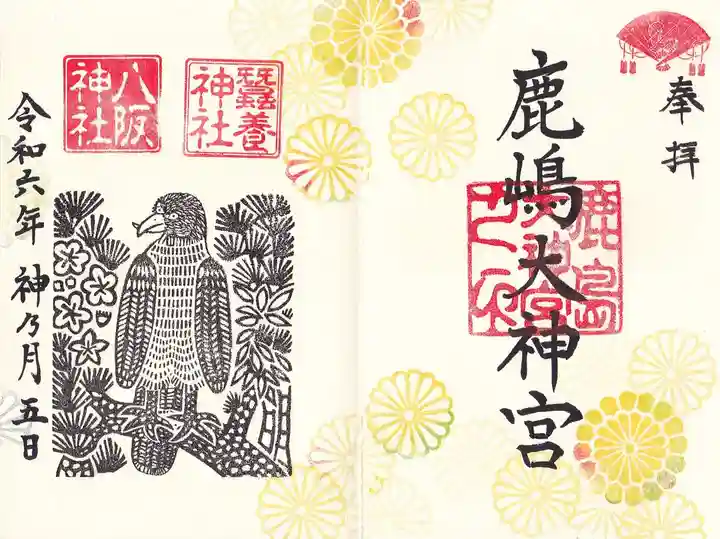 奉拝
鹿嶋大神宮
蠶養
神社
八阪
神社
令和六年 神乃月 五日